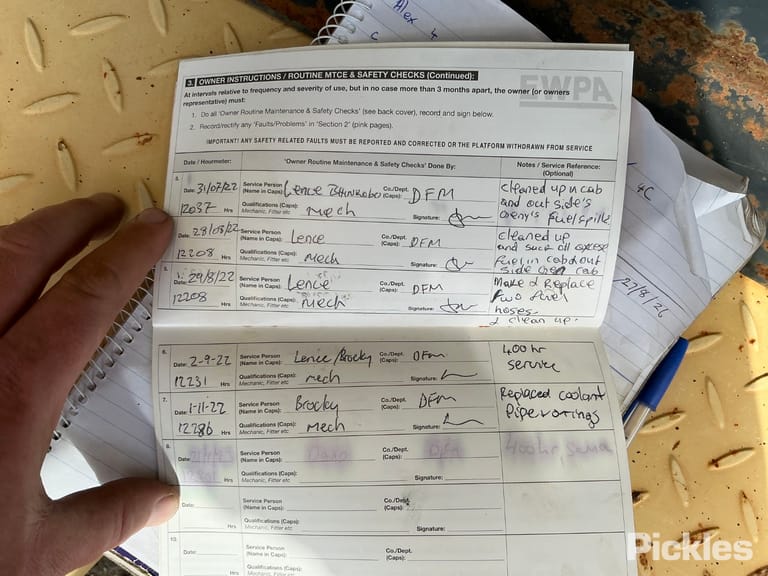 Alex 4
C
3. OWNER INSTRUCTIONS / ROUTINE MTCE & SAFETY CHECKS (Continued):
EWPA
At intervals relative to frequency and severity of use, but in no case more than 3 months apart, the owner (or owners representative) must:
1. Do all 'Owner Routine Maintenance & Safety Checks' (see back cover), record and sign below.
2. Record/rectify any 'Faults/Problems' in 'Section 2' (pink pages).
IMPORTANT! ANY SAFETY RELATED FAULTS MUST BE REPORTED AND CORRECTED OR THE PLATFORM WITHDRAWN FROM SERVICE
Date / Hourmeter: 'Owner Routine Maintenance & Safety Checks' Done By: Notes / Service Reference: (Optional)
Date: 31/07/22 Service Person (Name in Caps): Lence Co./Dept. (Caps): DFM
12037 Hrs Qualifications (Caps): Mechanic, Fitter etc Mech Signature:
cleaned up n cab
and out side's
fuel spills
Date: 28/08/22 Service Person (Name in Caps): Lence Co./Dept. (Caps): DFM
12208 Hrs Qualifications (Caps): Mechanic, Fitter etc Mech Signature:
cleaned up
and suck all excese
fuel in cab out
side cab
5. Date: 29/8/22 Service Person (Name in Caps): Lence Co./Dept. (Caps): DFM
12208 Hrs Qualifications (Caps): Mechanic, Fitter etc Mech Signature:
Make & Replace
two fuel
hoses
& clean up.
6. Date: 2-9-22 Service Person (Name in Caps): Lence/Brocky Co./Dept. (Caps): DFM
12231 Hrs Qualifications (Caps): Mechanic, Fitter etc Mech Signature:
400hr
service
7. Date: 1-11-22 Service Person (Name in Caps): Brocky Co./Dept. (Caps): DFM
12286 Hrs Qualifications (Caps): Mechanic, Fitter etc Mech Signature:
Replaced coolant
Pipe orings
8. Date: Service Person (Name in Caps): Co./Dept. (Caps):
Hrs Qualifications (Caps): Mechanic, Fitter etc Signature:
400hr
Date: Service Person (Name in Caps): Co./Dept. (Caps):
Hrs Qualifications (Caps): Mechanic, Fitter etc Signature:
10. Date: Service Person (Name in Caps): Co./Dept. (Caps):
Hrs Qualifications (Caps): Mechanic, Fitter etc Signature:
4C
Pickles